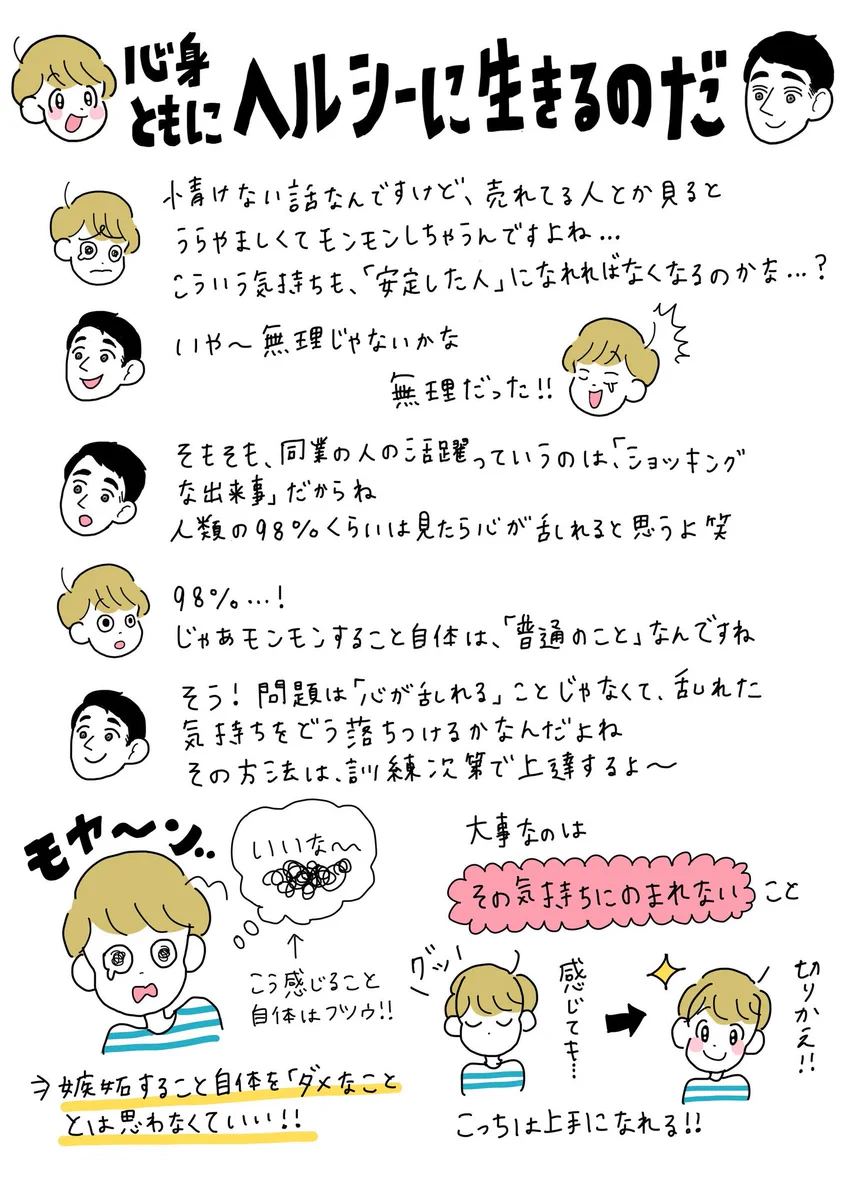 心身
ともに
ヘルシーに生きるのだ
情けない話なんですけど、売れてる人とか見ると
うらやましくてモンモンしちゃうんですよね…
こういう気持ちも、「安定した人」になれればなくなるのかな…？
いや〜無理じゃないかな
無理だった!!
そもそも、同業の人の活躍っていうのは、「ショッキング
な出来事」だからね
人類の98%くらいは見たら心が乱れると思うよ笑
98%…！
じゃあモンモンすること自体は、「普通のこと」なんですね
そう！問題は「心が乱れる」ことじゃなくて、乱れた
気持ちをどう落ちつけるかなんだよね
その方法は、訓練次第で上達するよ〜
モヤ〜ン..
いいな〜
↑
こう感じること
自体はフツウ!!
⇒嫉妬すること自体を「ダメなこと
とは思わなくていい!!
大事なのは
その気持ちにのまれない こと
グッ
感じても…
切りかえ!!
こっちは上手になれる!!